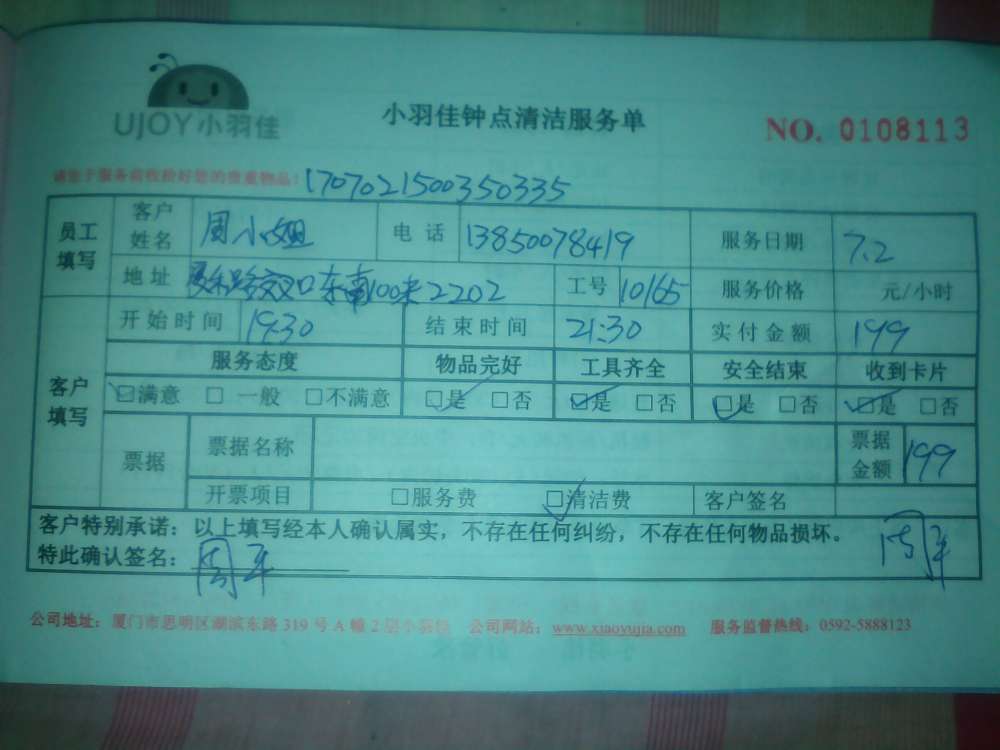 UJOY小羽佳
小羽佳钟点清洁服务单
NO. 0108113
请您于服务前收拾好您的贵重物品!
1707021500350335
员工填写 客户姓名 周小姐 电话 13850078419 服务日期 7.2
地址 路交叉口东南100米2202 工号 10165 服务价格 元/小时
客户填写 开始时间 19:30 结束时间 21:30 实付金额 199
服务态度 物品完好 工具齐全 安全结束 收到卡片
☑满意 □一般 □不满意 ☑是 □否 ☑是 □否 ☑是 □否 ☑是 □否
票据 票据名称 票据金额 199
开票项目 □服务费 ☑清洁费 客户签名
客户特别承诺:以上填写经本人确认属实,不存在任何纠纷,不存在任何物品损坏。
特此确认签名: 周平 周平
公司地址:厦门市思明区湖滨东路319号A幢2层小羽佳 公司网站:www.xiaoyujia.com 服务监督热线:0592-5888123